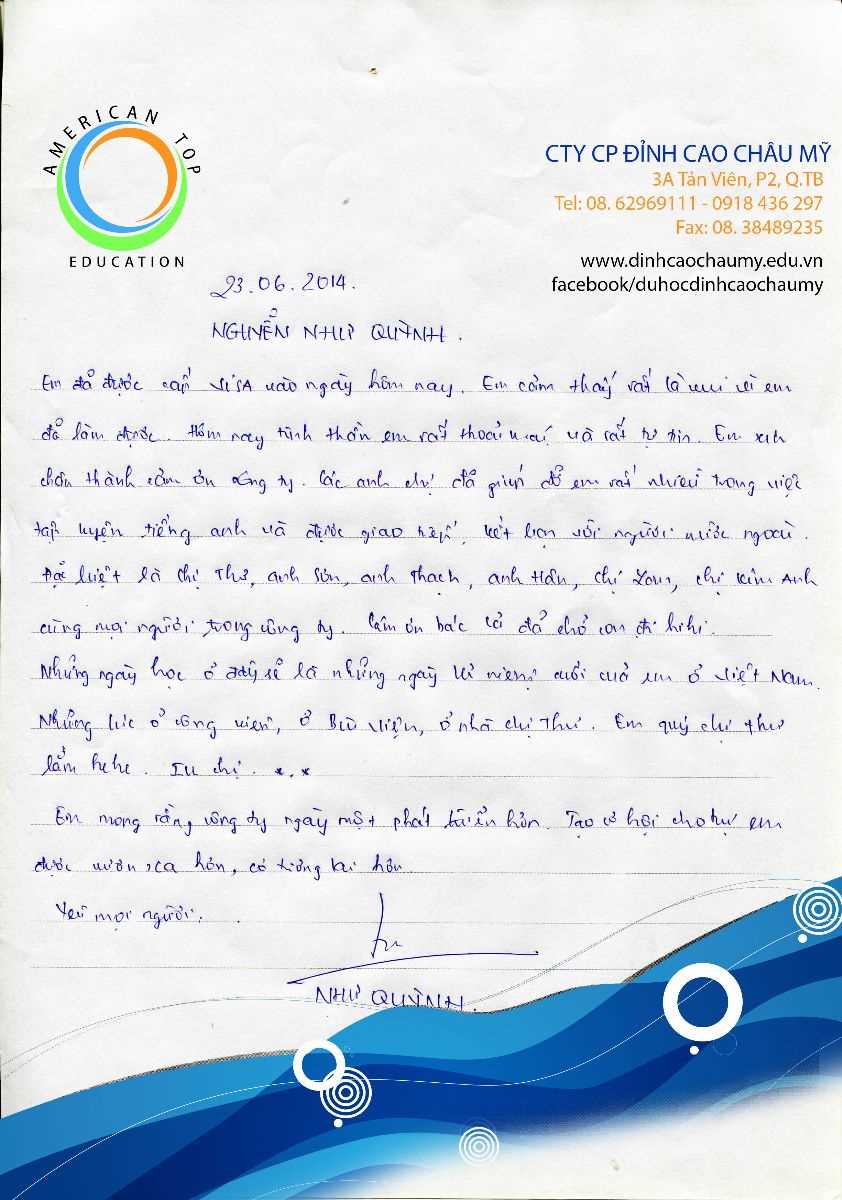 AMERICAN TOP
EDUCATION
CTY CP ĐỈNH CAO CHÂU MỸ
3A Tản Viên, P2, Q.TB
Tel: 08. 62969111 - 0918 436 297
Fax: 08. 38489235
www.dinhcaochaumy.edu.vn
facebook/duhocdinhcaochaumy
23.06.2014.
NGUYỄN NHƯ QUỲNH.
Em đã được cấp VISA vào ngày hôm nay. Em cảm thấy rất là vui vì em
đã làm được. Hôm nay tinh thần em rất thoải mái và rất tự tin. Em xin
chân thành cảm ơn công ty. Các anh chị đã giúp đỡ em rất nhiều trong việc
tập luyện tiếng anh và được giao tiếp, kết bạn với người nước ngoài.
Đặc biệt là chị Thư, anh Sơn, anh Thạch, anh Hân, chị Loan, chị Kim Anh
cùng mọi người trong công ty. Cảm ơn bác đã chở con đi hihi.
Những ngày học ở đây sẽ là những ngày kỉ niệm cuối của em ở Việt Nam.
Những lúc ở công viên, ở Bưu Viện, ở nhà chị Thư. Em quý chị Thư
lắm hehe. Iu chị. *.*
Em mong rằng công ty ngày một phát triển hơn. Tạo cơ hội cho tụi em
được vươn xa hơn, có tương lai hơn.
Yêu mọi người.
NHƯ QUỲNH.